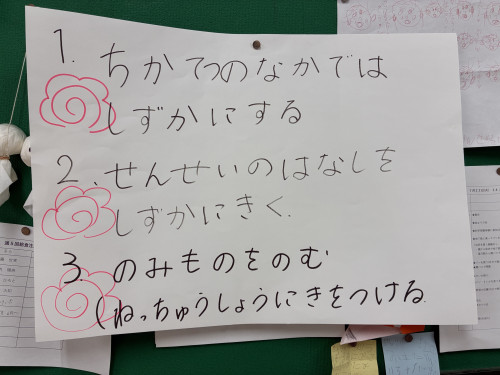 1. ちかてつのなかでは
しずかにする
2. せんせいのはなしを
しずかにきく.
3. のみものをのむ
(ねっちゅうしょうにきをつける.